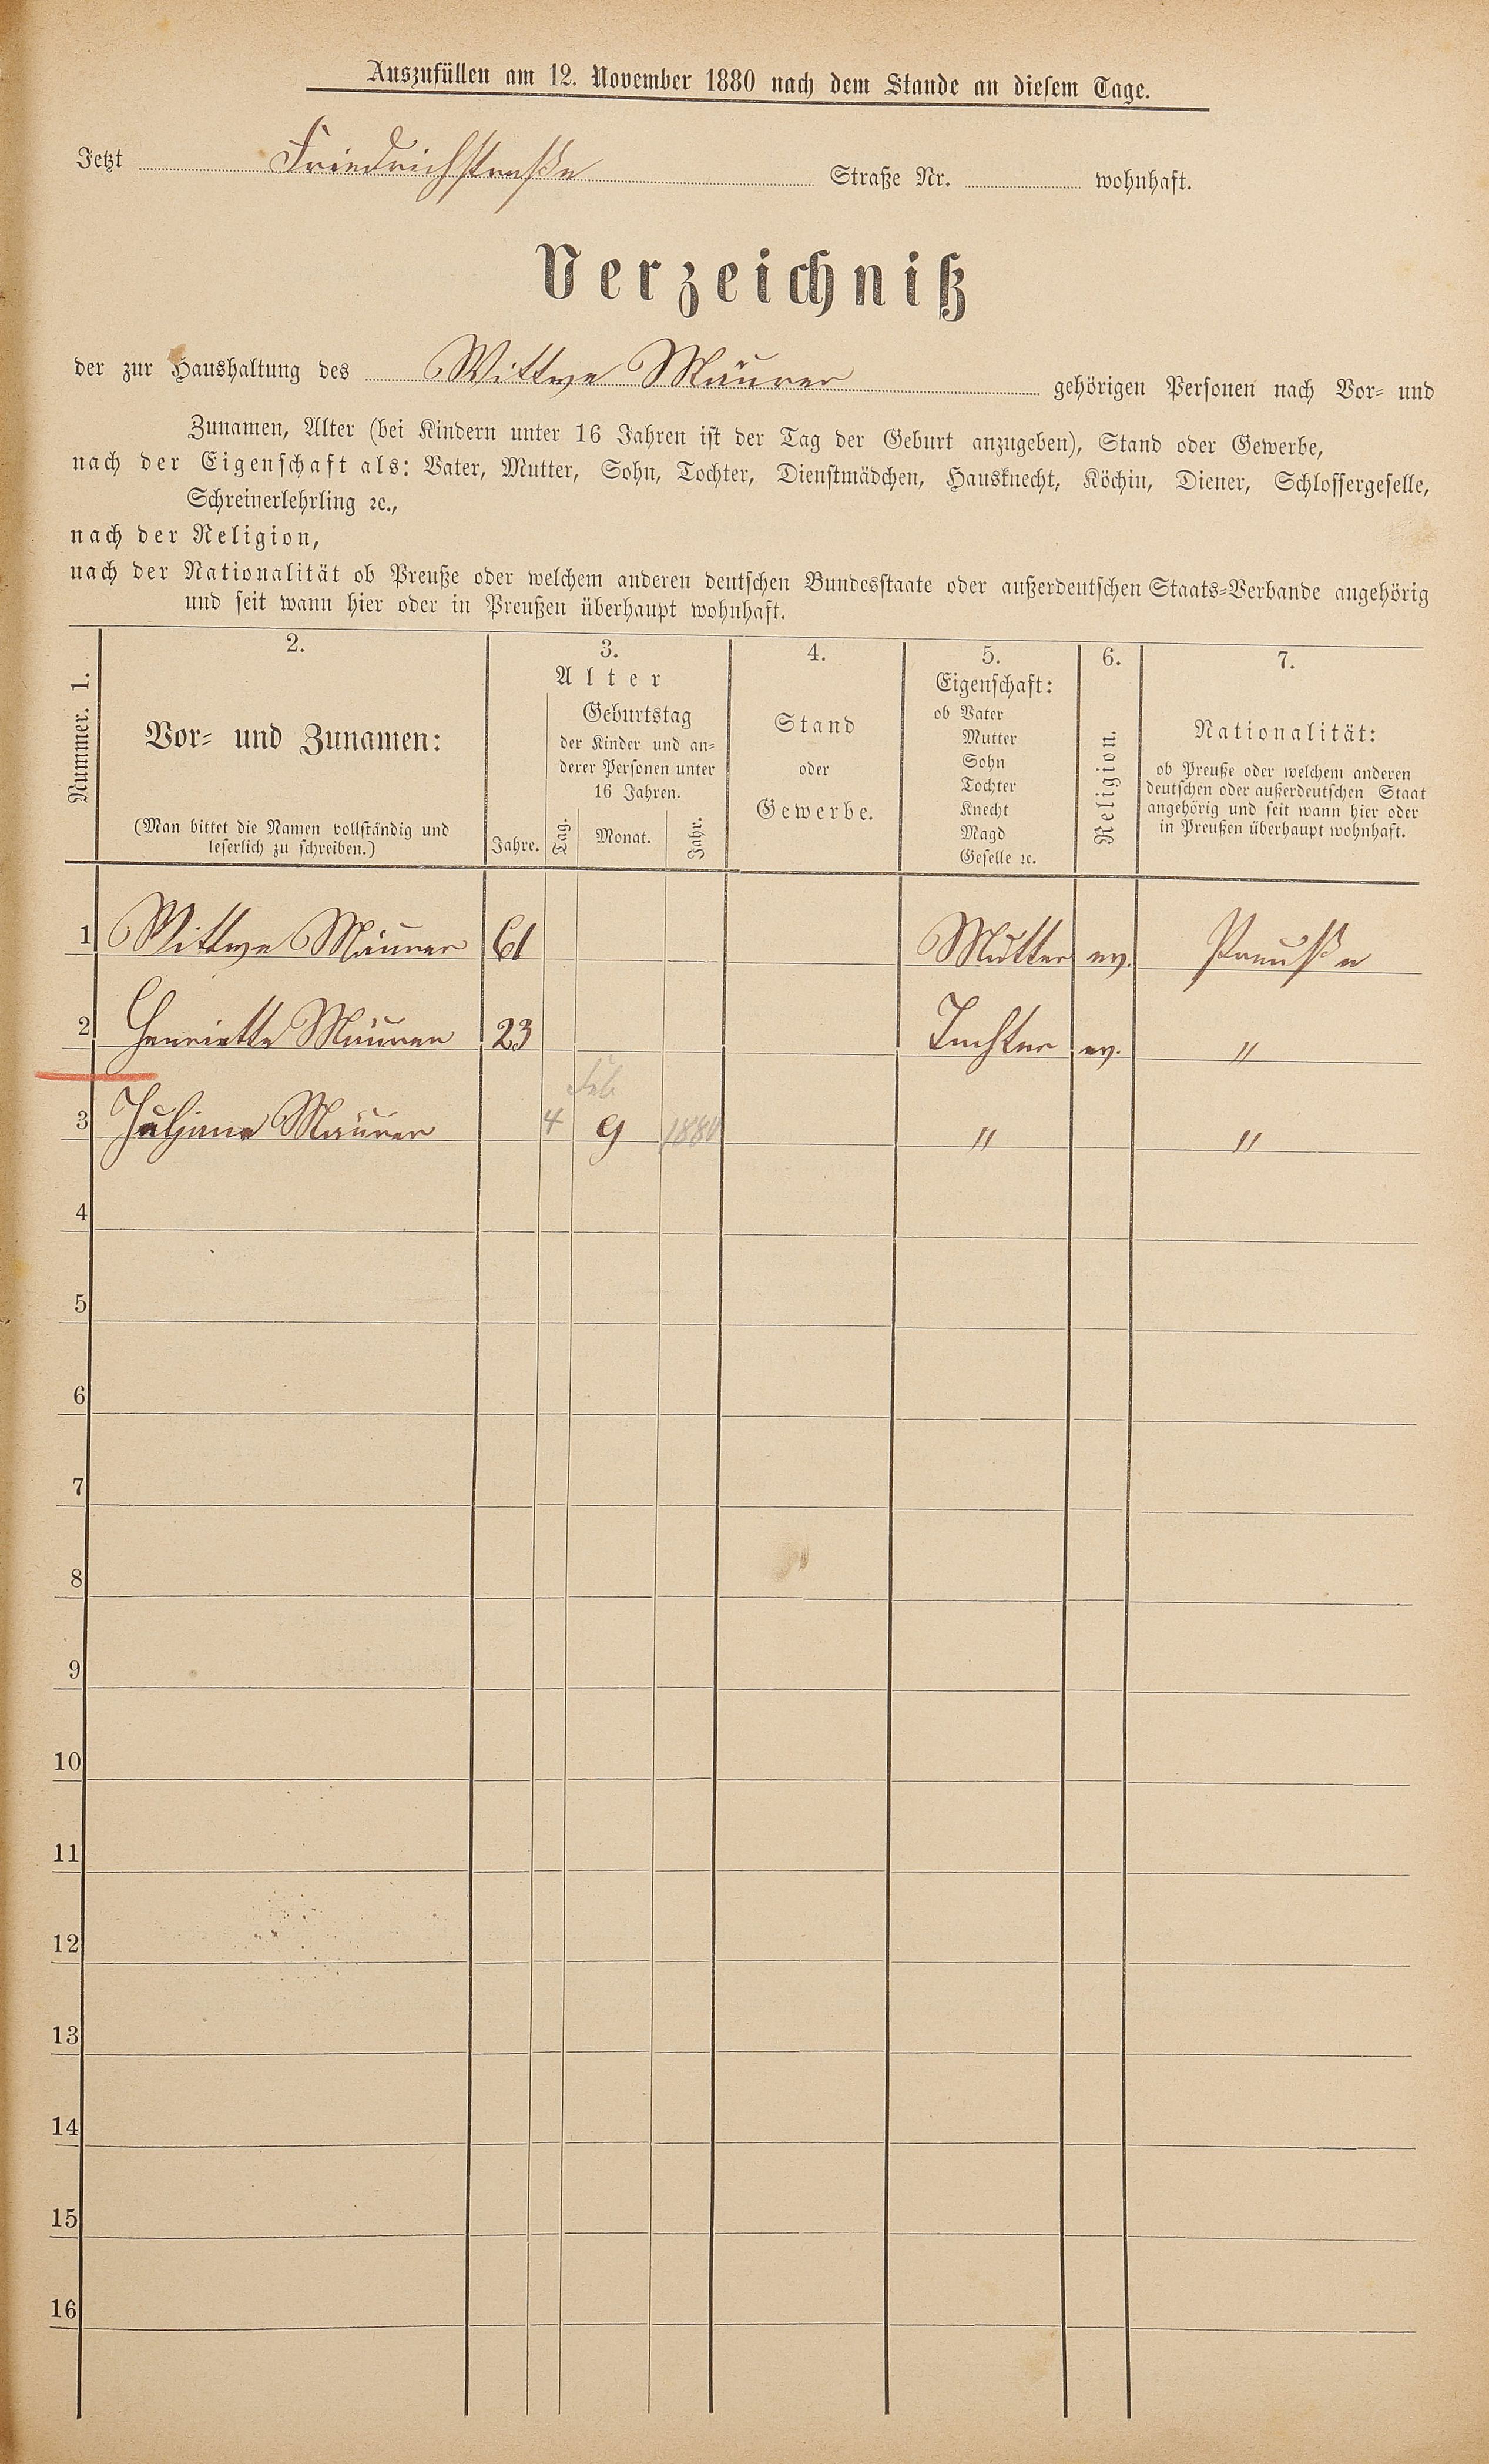 Auszufüllen am 12. November 1880 nach dem Stande an diesem Tage.
Jetzt Friedrichstraße Straße Nr. wohnhaft.
Verzeichniß
der zur Haushaltung des Wittwe Mäurer gehörigen Personen nach Vor- und
Zunamen, Alter (bei Kindern unter 16 Jahren ist der Tag der Geburt anzugeben), Stand oder Gewerbe,
nach der Eigenschaft als: Vater, Mutter, Sohn, Tochter, Dienstmädchen, Hausknecht, Köchin, Diener, Schlossergeselle,
Schreinerlehrling ꝛc.,
nach der Religion,
nach der Nationalität ob Preuße oder welchem anderen deutschen Bundesstaate oder außerdeutschen Staats-Verbande angehörig
und seit wann hier oder in Preußen überhaupt wohnhaft.
Nummer. 1.
2.
Vor- und Zunamen:
(Man bittet die Namen vollständig und
leserlich zu schreiben.)
3.
Alter
Jahre.
Geburtstag
der Kinder und an-
derer Personen unter
16 Jahren.
Tag. Monat. Jahr.
4.
Stand
oder
Gewerbe.
5.
Eigenschaft:
ob Vater
Mutter
Sohn
Tochter
Knecht
Magd
Geselle ꝛc.
6.
Religion.
7.
Nationalität:
ob Preuße oder welchem anderen
deutschen oder außerdeutschen Staat
angehörig und seit wann hier oder
in Preußen überhaupt wohnhaft.
1 Wittwe Mäurer 61 Mutter ev. Preuße
2 Henriette Mäurer 23 Tochter ev. "
Feb
3 Juljane Mäurer 4 9 1880 " "
4
5
6
7
8
9
10
11
12
13
14
15
16